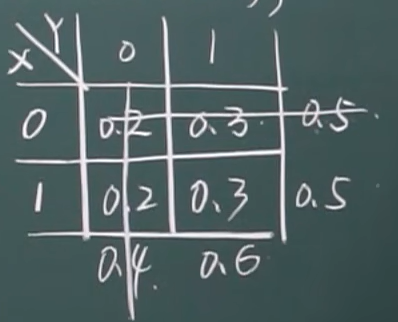 Y
X 0 1
0 0.2 0.3 0.5
1 0.2 0.3 0.5
0.4 0.6